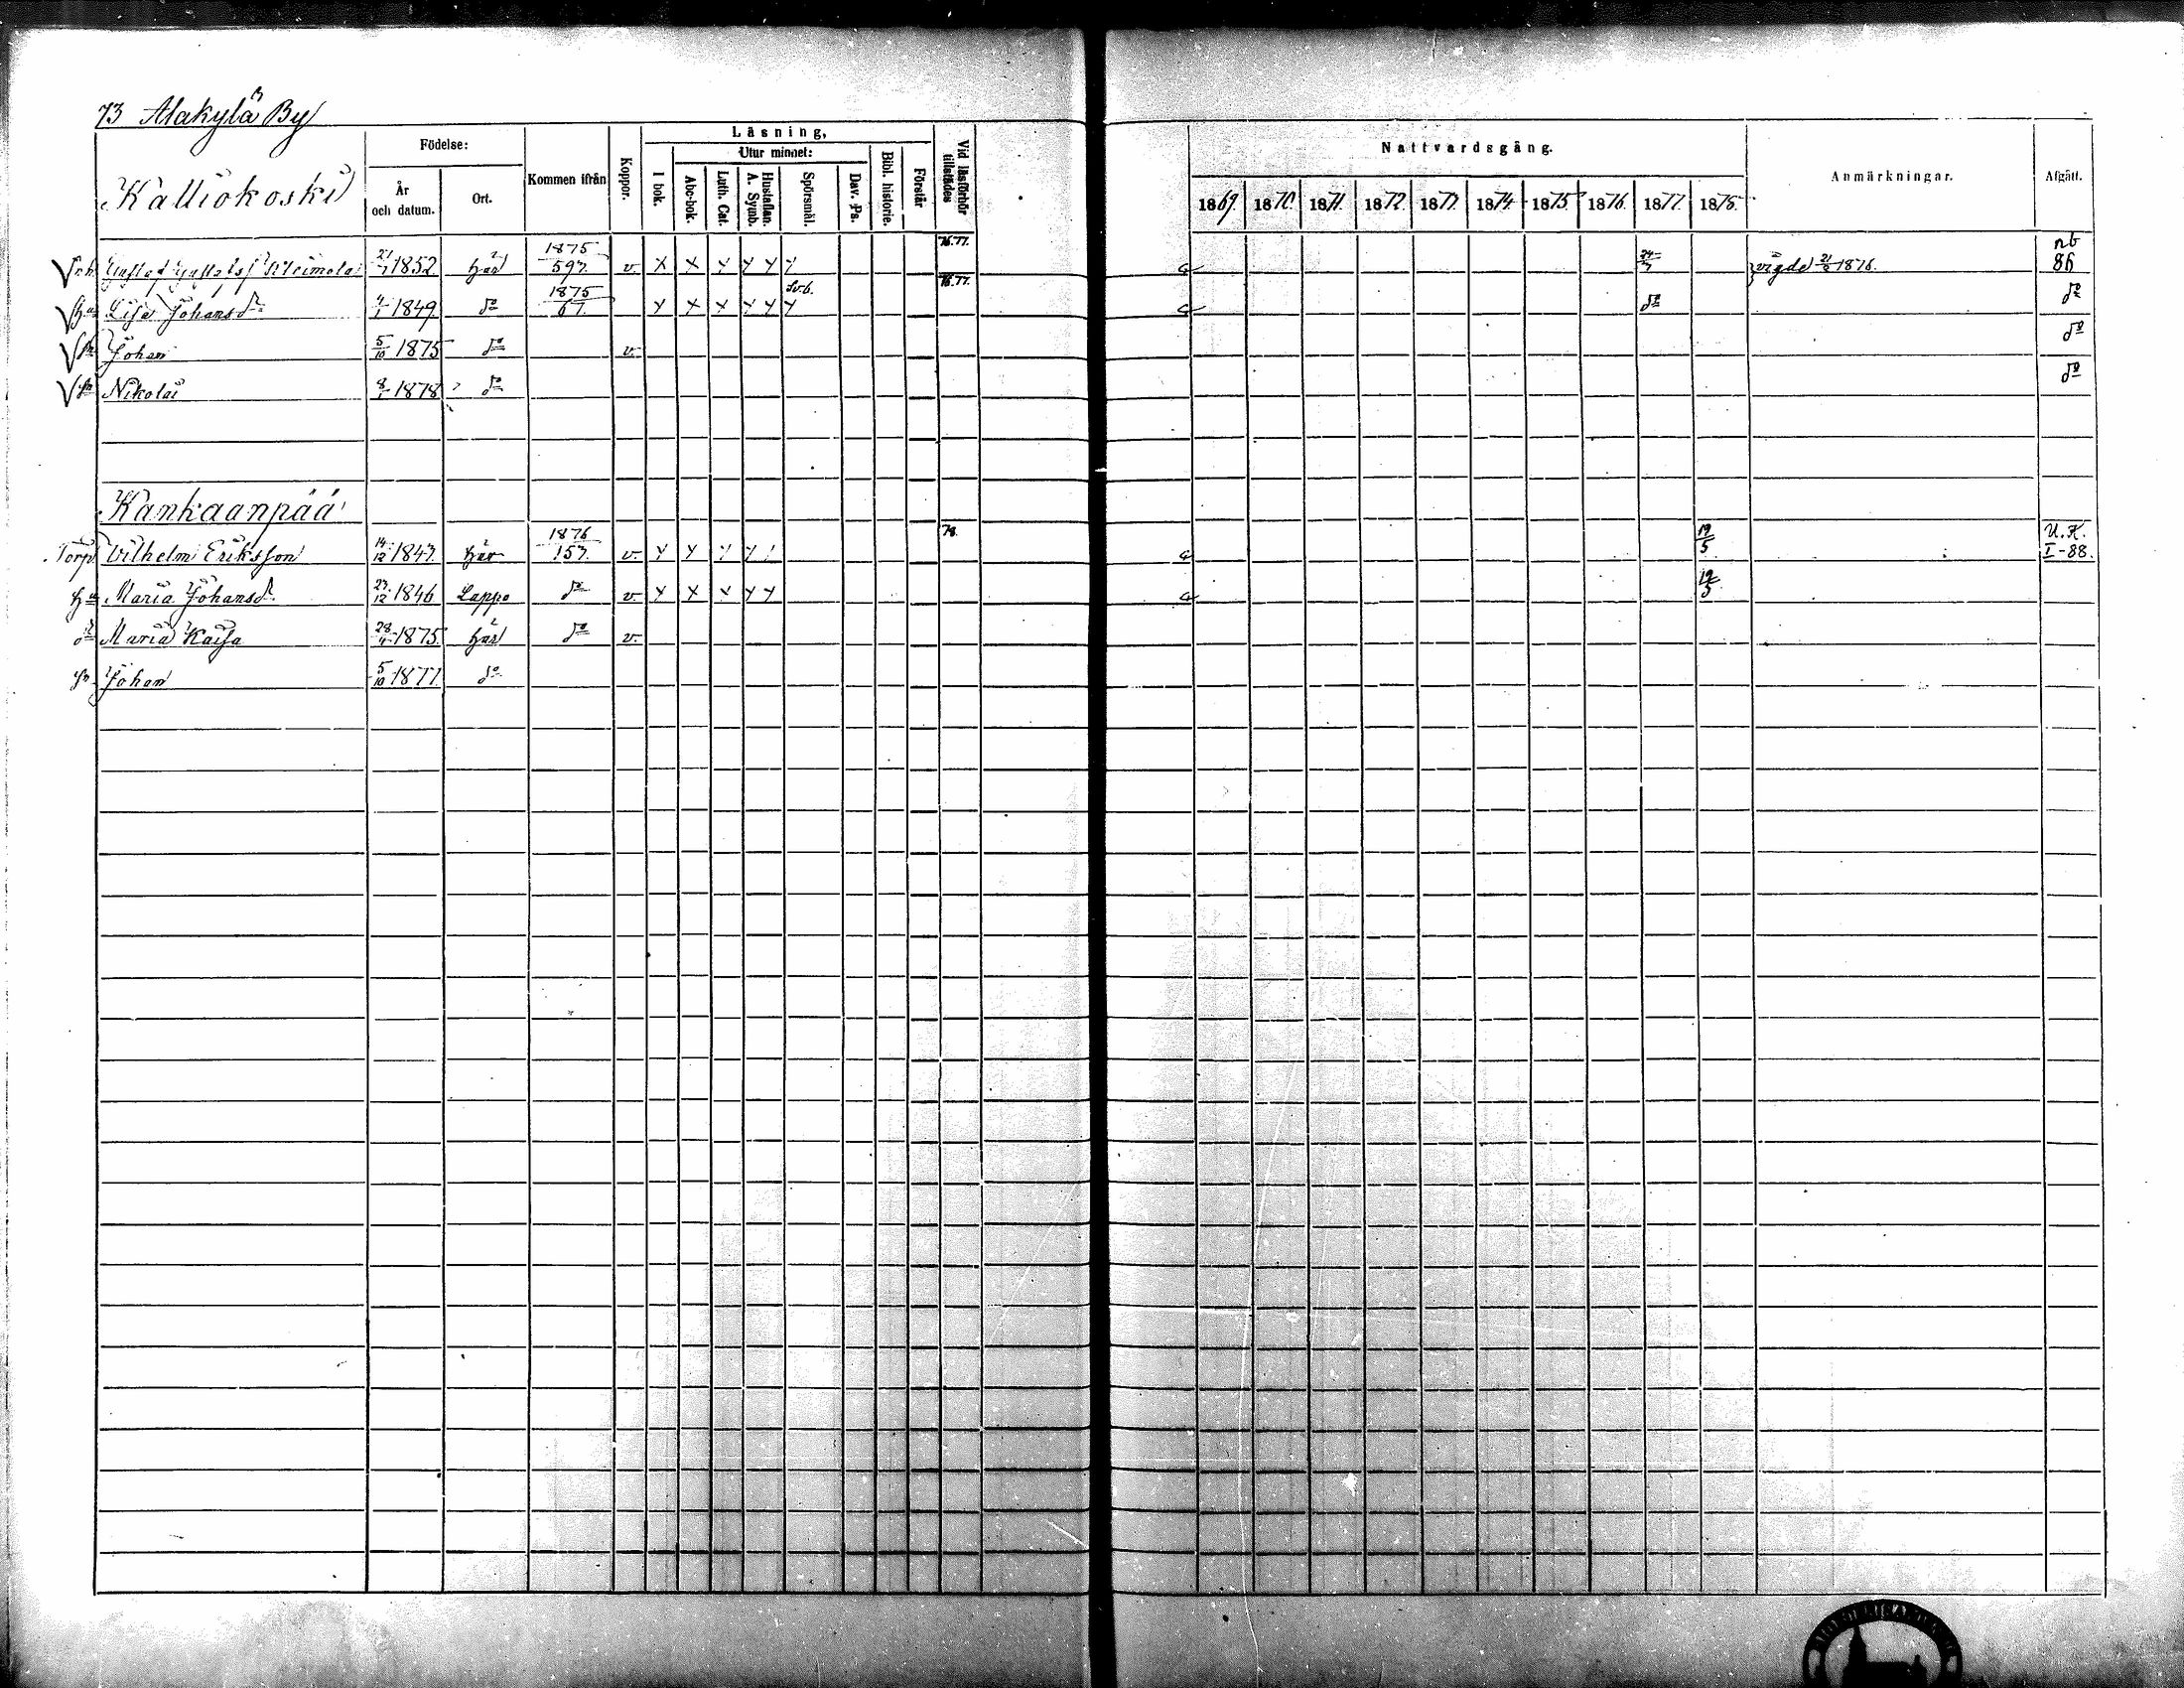 73 Alakylä By
Kalliokoski
Födelse:
År och datum.
Ort.
Kommen ifrån
Koppor.
Läsning,
I bok.
Utur minnet:
Abc-bok.
Luth. Cat.
Hustaflan. A. Symb.
Spörsmål.
Dav. Ps.
Bibl. historie.
Förstår
Vid läsförhör tillstädes
Nattvardsgång.
1869. 1870. 1871. 1872. 1873. 1874. 1875. 1876. 1877. 1878.
Anmärkningar.
Afgått.
Gustaf Gustafss 1852 här 1875/597. v. x x y y y y 76.77. vigde 21/2 1876. nb 86
hu Lisa Johansdr 1849 do 1875/67. y x x y y y Sv.b. 76.77. do do
sn Johan 5/10 1875 do v. do
sn Nikolai 8/1 1878 do do
Kankaanpää
Torp. Wilhelm Eriksson 14/12 1847. här 1876/157. v. y y y y 78. 19/5 U.K. I-88.
hu Maria Johansdr 23/12 1846 Lappo do v. y x x y y 19/5
dr Maria Kaisa 28/4 1875. här do v.
sn Johan 5/10 1877 do